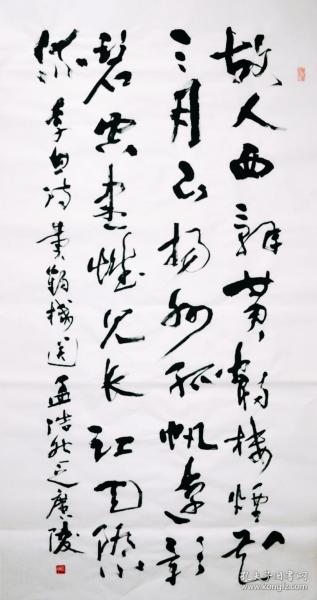 故人西辞黄鹤楼烟花
三月下扬州孤帆远影
碧空尽唯见长江天际
流 李白诗黄鹤楼送孟浩然之广陵